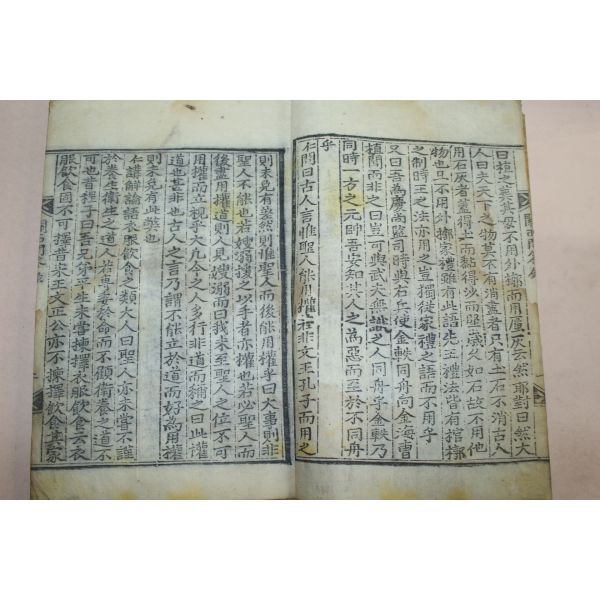 曰植之葬其母不用外槨而用蜃灰云然耶對曰然大
人曰夫天下之物莫不有消盡者只有土石不消古人
用石灰者蓋得土而黏得沙而堅歲久如石故不用他
物也且不用外槨家禮雖有此語先王禮法皆有棺槨
之制時王之法亦用之豈獨從家禮之語而不用乎
又曰吾爲慶尚監司時與右兵使金軼同舟向金海曹
植聞而非之曰豈可與武夫無識之人同舟乎金軼乃
同時一方之元帥吾安知其人之爲惡而至於不同舟
乎
仁問曰古人言惟聖人能用權若非文王孔子而用之
則未免有弊然則惟聖人而後能用權乎曰大事則非
聖人不能也若嫂溺援之以手者亦權也若必聖人而
後盡用權道則人見嫂溺而曰我未至聖人之位不可
用權而立視乎大凡今之人多行非道而稱之曰此權
道也甚非也古人之言乃謂不能立於道而好尚用權
則未免有此弊也
仁講解論語衣服飲食之類大人曰聖人亦未嘗不謹
於養生衛生之道人若專委於命而不顧衛養之道不
可也昔程子曰吾兄弟平生未嘗揀擇衣服飲食云衣
服飲食固不可擇昔宋王文正公亦不揀擇飲食其家